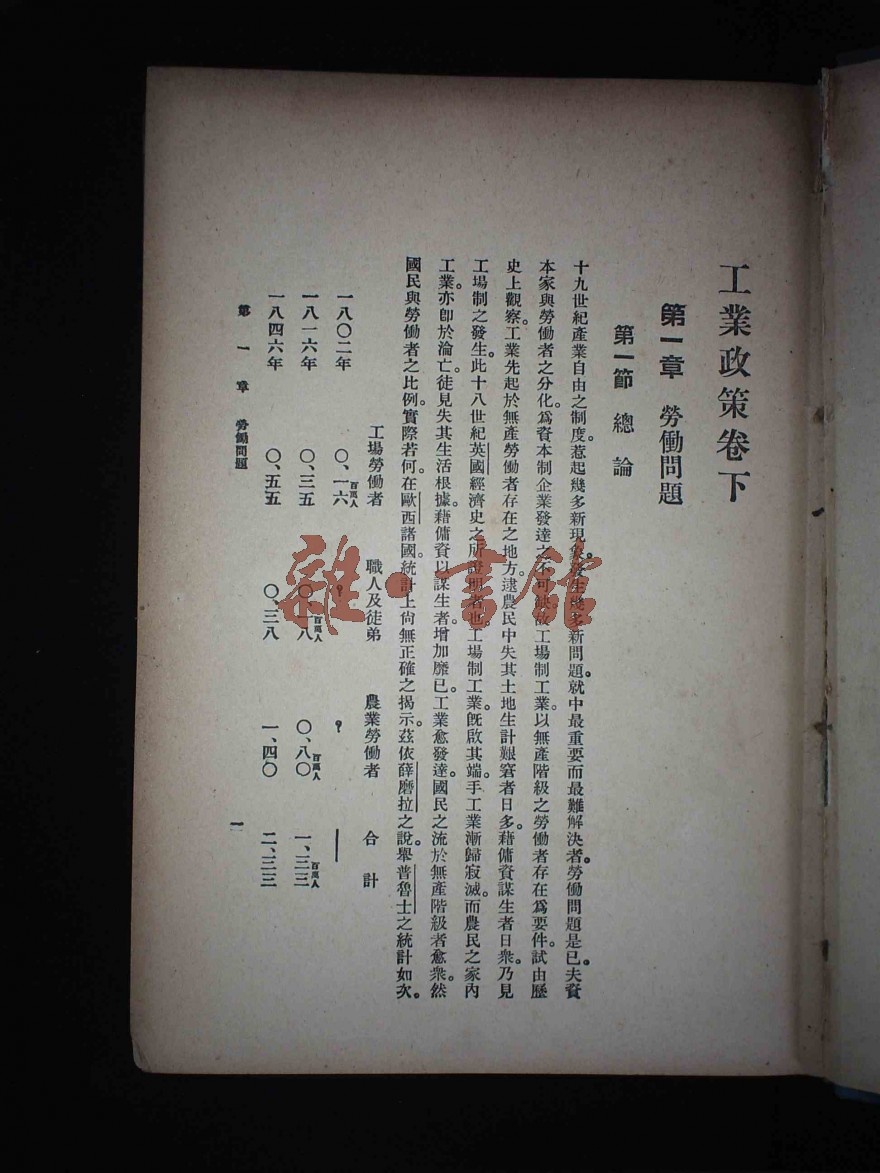 工業政策卷下
第一章 勞働問題
第一節 總論
十九世紀產業自由之制度。惹起幾多新現象。發生幾多新問題。就中最重要而最難解決者。勞働問題是已。夫資
本家與勞働者之分化。爲資本制企業發達之不可缺。故工場制工業。以無產階級之勞働者存在爲要件。試由歷
史上觀察。工業先起於無產勞働者存在之地方。逮農民中失其土地生計艱窘者日多。藉傭資謀生者日衆。乃見
工場制之發生。此十八世紀英國經濟史之所證明者也。工場制工業。既啟其端。手工業漸歸寂滅。而農民之家內
工業。亦卽於淪亡。徒見失其生活根據。藉傭資以謀生者。增加靡已。工業愈發達。國民之流於無產階級者愈衆。然
國民與勞働者之比例。實際若何。在歐西諸國。統計上尙無正確之揭示。茲依薛磨拉之說。舉普魯士之統計如次。
工場勞働者 職人及徒弟 農業勞働者 合計
一八〇二年 〇、一六百萬人 ? ? ——
一八一六年 〇、三五 〇、一八百萬人 〇、八〇百萬人 一、三三百萬人
一八四六年 〇、五五 〇、三八 一、四〇 二、三三
第一章 勞働問題 一
雜·書館